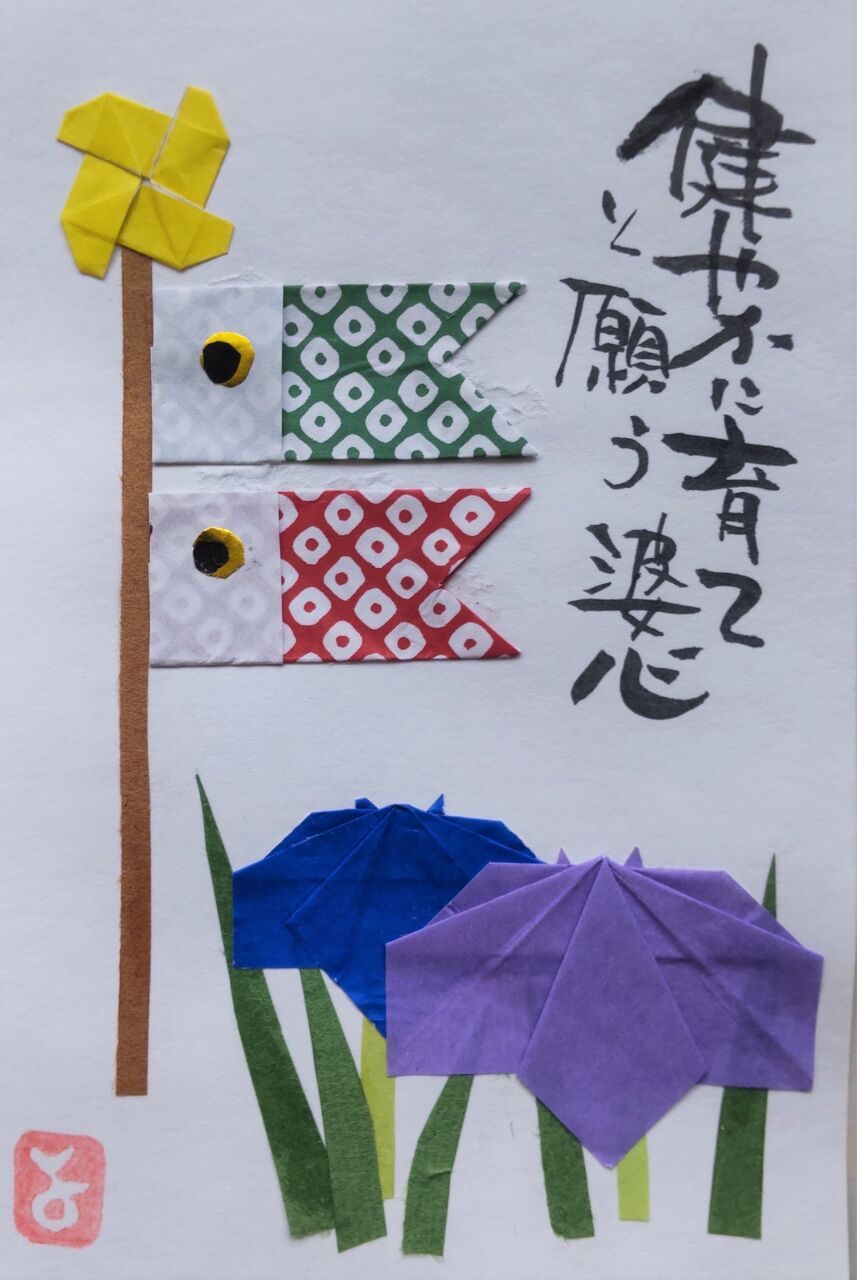 健やかに育て
と願う婆心